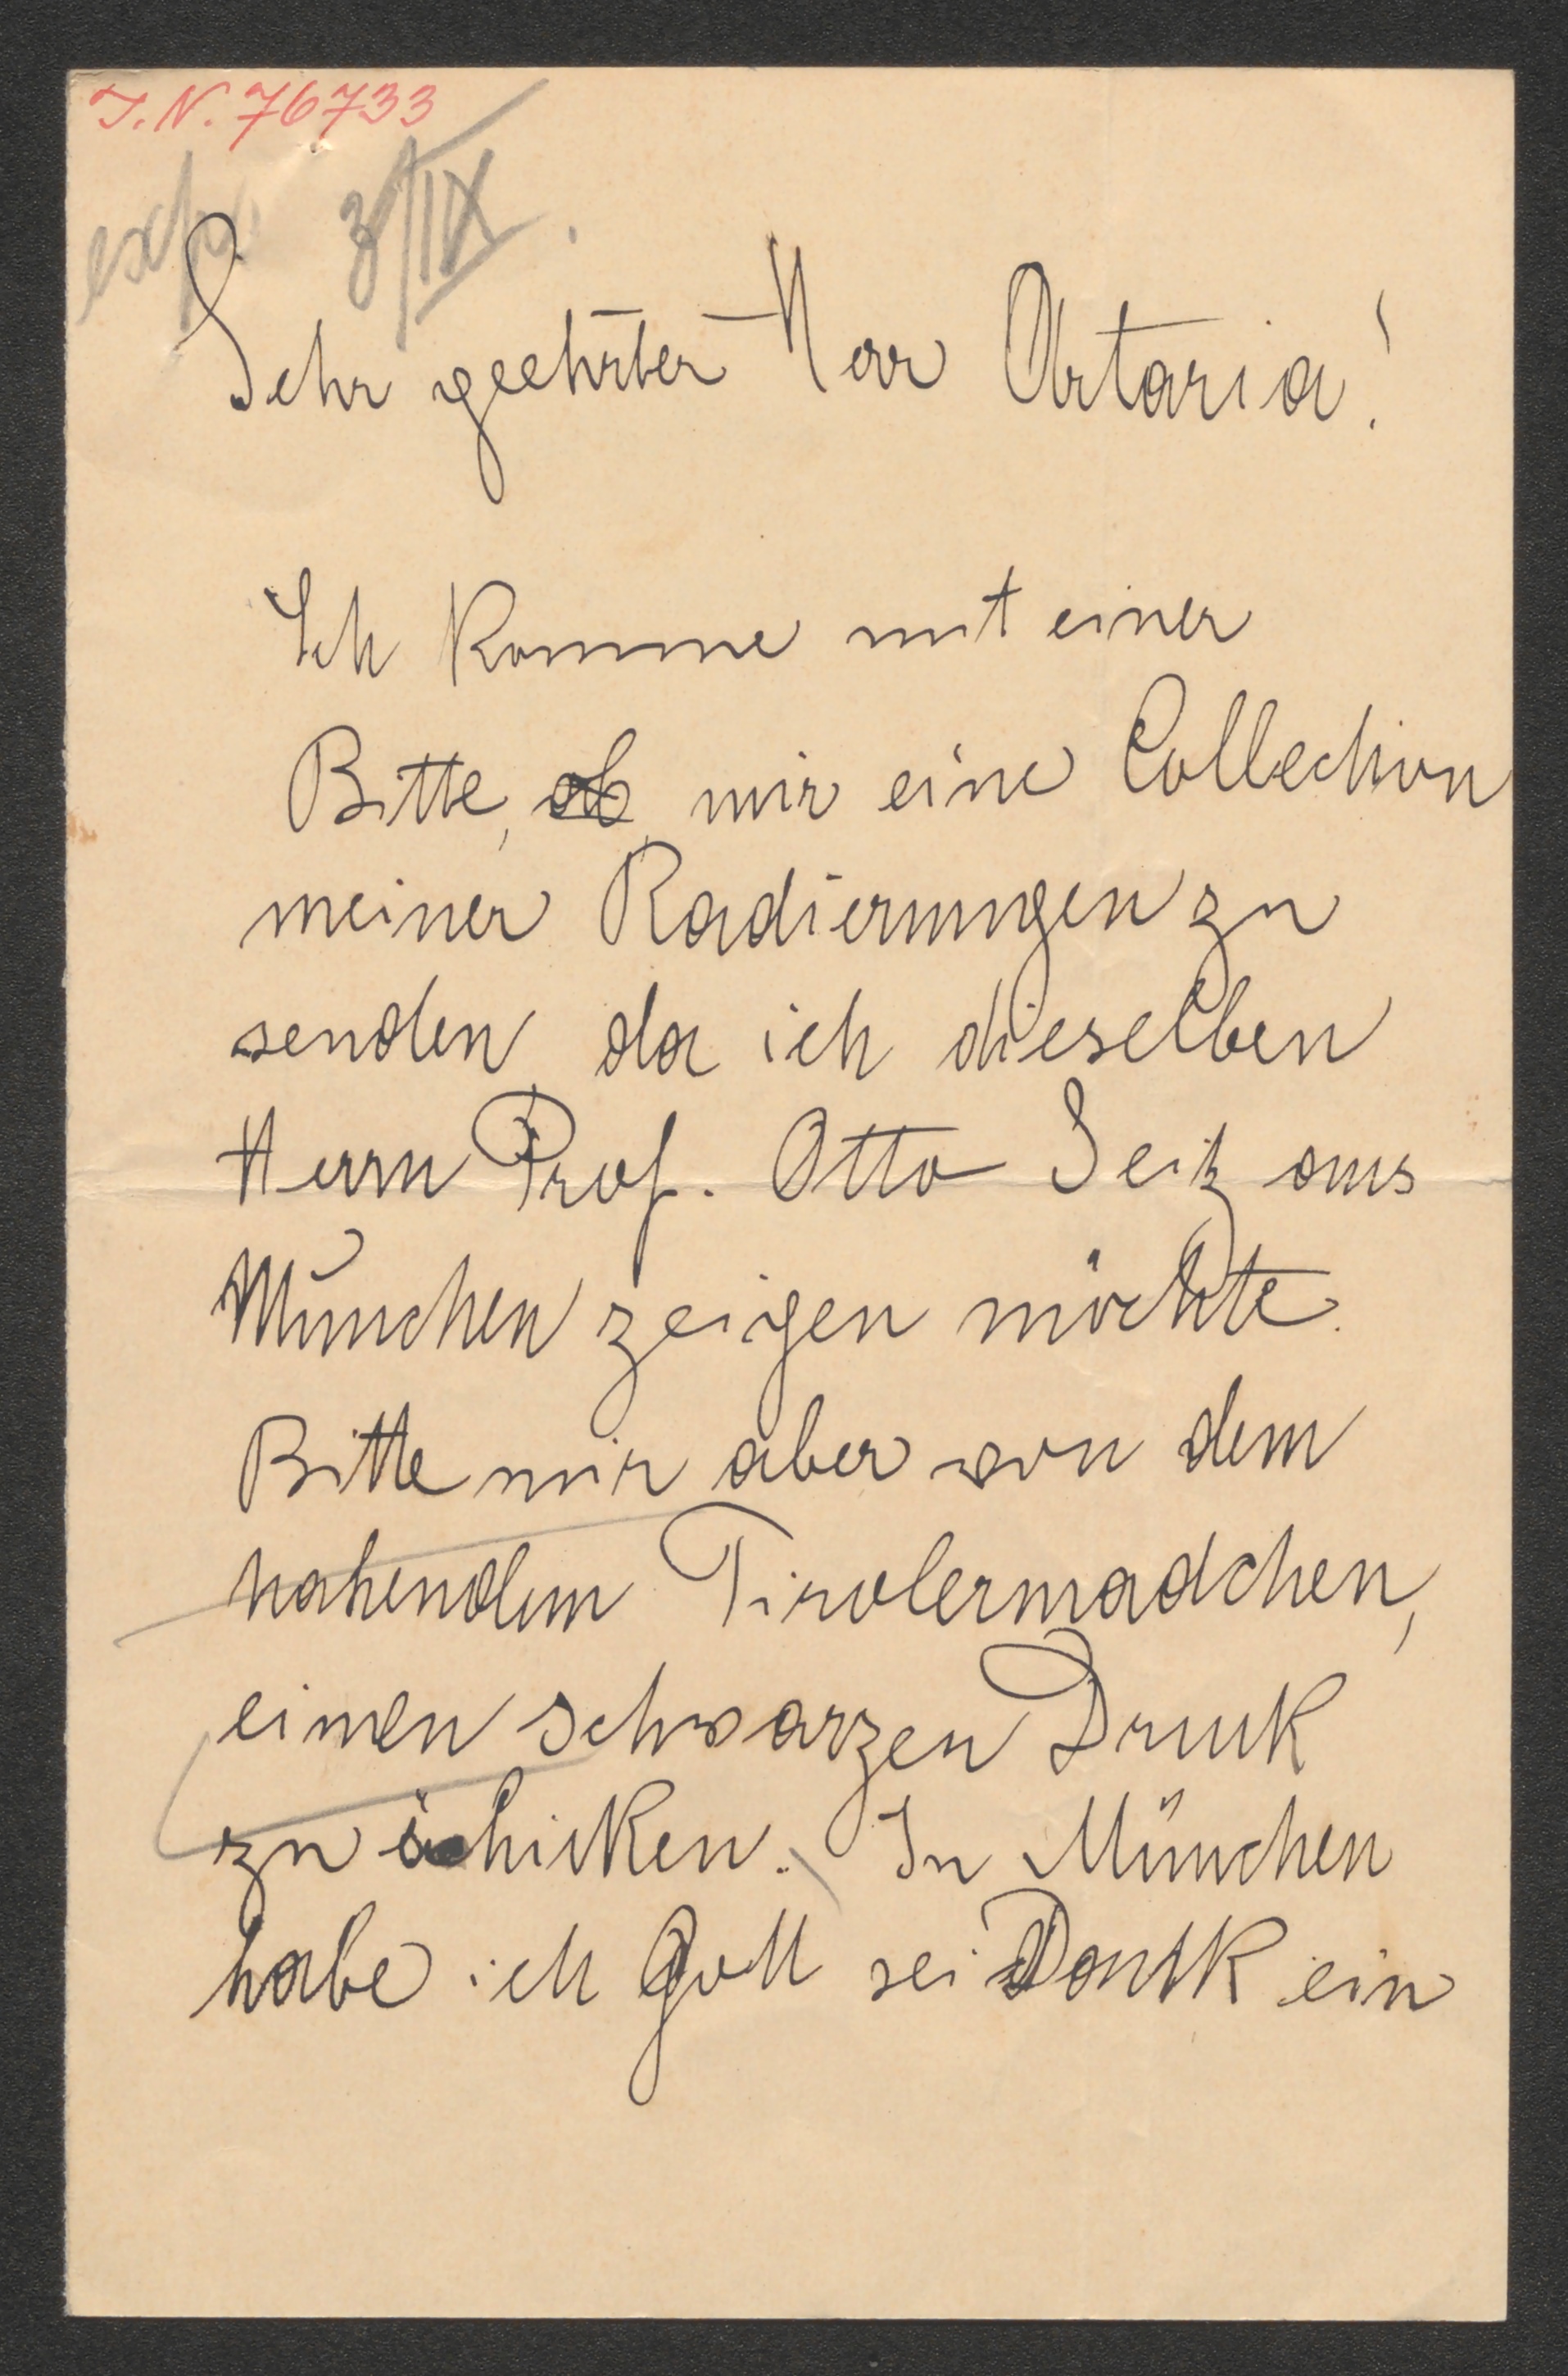 I.N. 76733
exp. 3/IX.
Sehr geehrter Herr Artaria!
Ich komme mit einer
Bitte, ob, mir eine Collection
meiner Radierungen zu
senden da ich dieselben
Herrn Prof. Otto Seitz aus
München zeigen möchte.
Bitte mir aber von dem
nahendem Tirolermadchen,
einen schwarzen Druck
zu schicken. In München
habe ich Gott sei Dank ein